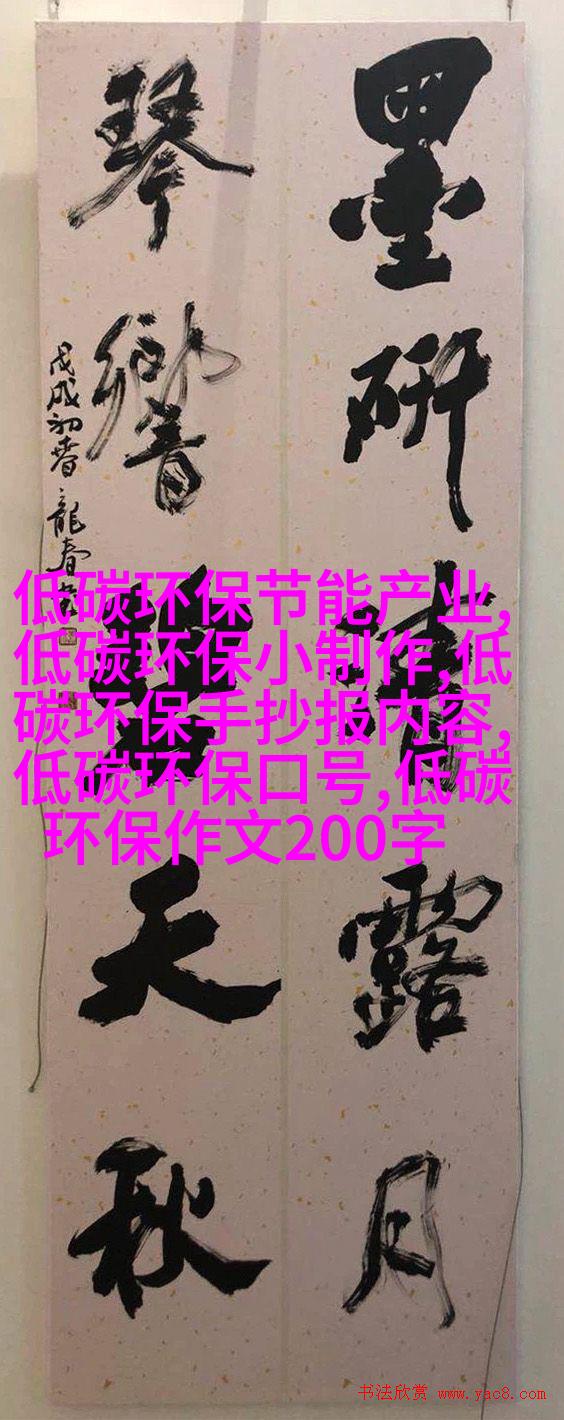 墨研清露月
琴響碧天秋
戊戌初春 龍春
低碳环保节能产业,
低碳环保小制作,低
碳环保手抄报内容,
低碳环保口号,低碳
环保作文200字
书法欣赏 www.yac8.com